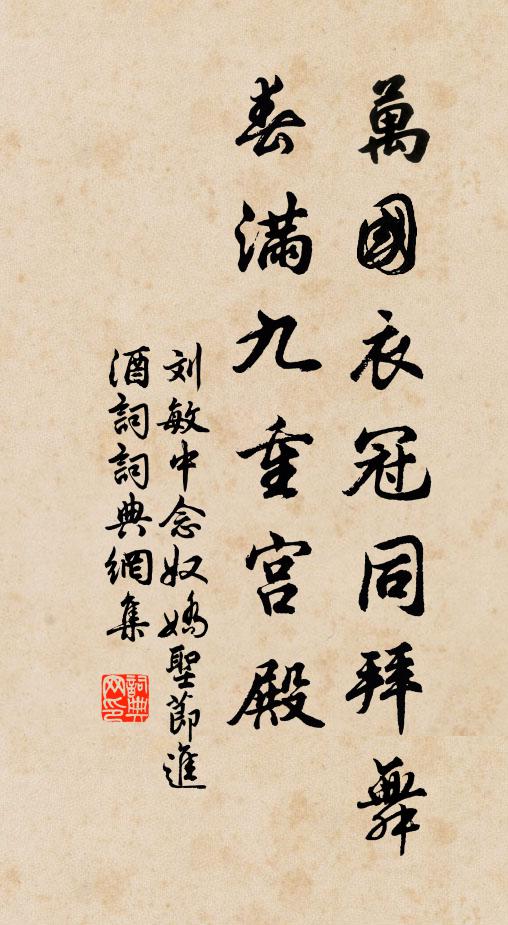 萬國衣冠同拜舞
春滿九重宫殿
刘敏中念奴嬌聖節進
酒詞詞典網集
詞典
网印